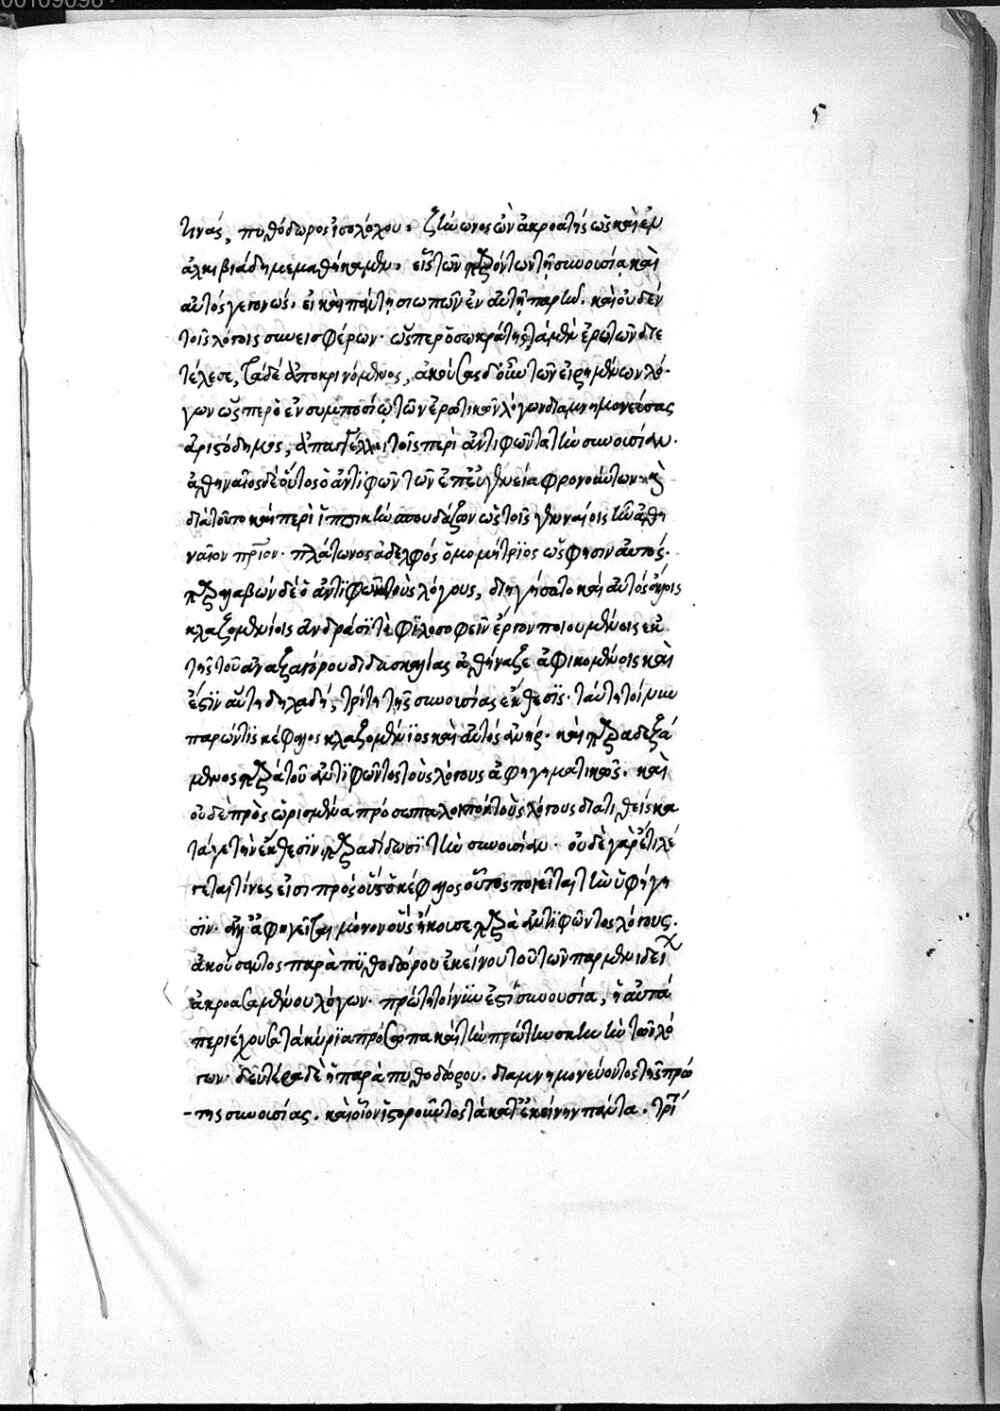 5
τινάς, πυθόδωρος ἰσολόχου. ζήνωνος ὢν ἀκροατής ὡς καὶ ἐν
ἀλκιβιάδῃ μεμαθήκαμεν. εἷς τῶν παρόντων τῇ συνουσίᾳ καὶ
αὐτὸς γεγονώς. εἰ καὶ πάντη σιωπῶν ἐν αὐτῇ παρῆν. καὶ οὐδὲν
τοῖς λόγοις συνεισφέρων. ὥσπερ ὃ σωκράτης τὰ μὲν ἐρωτῶν διε
τέλεσε, τὰ δὲ ἀποκρινόμενος, ἀκούσας δ' οὖν τῶν εἰρημένων λό
γων ὥσπερ ὁ ἐν συμποσίῳ τῶν ἐρωτικῶν λόγων διαμνημονεύσας
ἀριστόδημος, ἀπαγγέλλει τοῖς περὶ ἀντιφῶντα τὴν συνουσίαν.
ἀθηναῖος δὲ οὗτος ὁ ἀντιφῶν τῶν ἐπ' εὐγενείᾳ φρονούντων καὶ
διὰ τοῦτο καὶ περὶ ἱππικὴν σπουδάζων ὡς τοῖς γενναίοις ἦν ἀθη
ναίων πάτριον. πλάτωνος ἀδελφός ὁμομήτριος ὥς φησιν αὐτός.
παραλαβὼν δὲ ὁ ἀντιφῶν τοὺς λόγους, διηγήσατο καὶ αὐτός
κλαζομενίοις ἀνδράσί τε φιλοσοφεῖν ἔργον ποιουμένοις ἐκ
τῆς τοῦ ἀναξαγόρου διδασκαλίας ἀθήναζε ἀφικομένοις καὶ
ἔστιν αὕτη δηλαδή, τρίτη τῆς συνουσίας ἔκθεσις. ταύτῃ τοίνυν
παρών τις κέφαλος κλαζομένιος καὶ αὐτὸς ἀνήρ. καὶ παραδεξά
μενος παρὰ τοῦ ἀντιφῶντος τοὺς λόγους ἀφηγηματικῶς. καὶ
οὐδὲ πρὸς ὡρισμένα πρόσωπα λοιπὸν τοὺς λόγους διατιθείς κα
τά γε τὴν ἔκθεσιν, παραδίδωσι τὴν συνουσίαν. οὐδὲ γὰρ ἔτι λέ
γεται τίνες εἰσὶ πρὸς οὓς ὁ κέφαλος οὗτος ποιεῖται τὴν ὑφήγη
σιν. ἀλλ' ἀφηγεῖται μόνον οὓς ἤκουσε παρὰ ἀντιφῶντος λόγους.
ἀκούσαντος παρὰ πυθοδώρου ἐκείνου τούτων παρμενίδει
ἀκροασαμένου λόγων. πρώτη τοίνυν ἐστὶ συνουσία, ἡ αὐτὰ
περιέχουσα τὰ κύρια πρόσωπα καὶ τὴν πρώτην σκηνὴν τῶν λό
γων. δευτέρα δὲ ἡ παρὰ πυθοδώρου. διαμνημονεύοντος τῆς πρώ
της συνουσίας. καὶ οἷον ἱστοροῦντος τὰ κατ' ἐκείνην πάντα. τρί